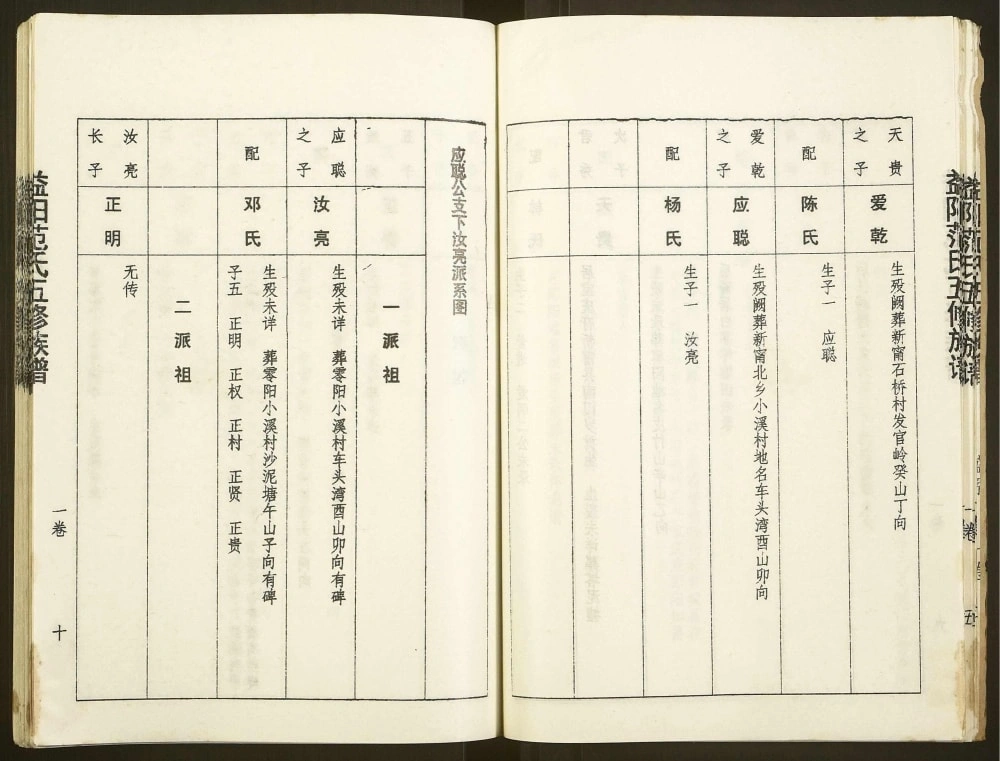 天贵之子
爱乾
生殁阙葬新甯石桥村发官岭癸山丁向
配
陈氏
生子一 应聪
爱乾之子
应聪
生殁阙葬新甯北乡小溪村地名车头湾酉山卯向
配
杨氏
生子一 汝亮
应聪公支下汝亮派系图
一派祖
应聪之子
汝亮
生殁未详 葬零阳小溪村车头湾酉山卯向有碑
配
邓氏
生殁未详 葬零阳小溪村沙泥塘午山子向有碑
子五 正明 正权 正村 正贤 正贵
二派祖
汝亮长子
正明
无传
益阳范氏五修族谱
一卷
十